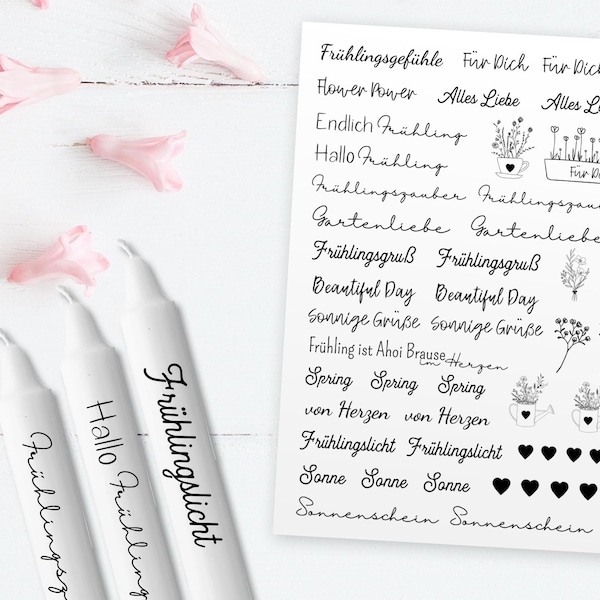 Frühlingsgefühle Für Dich Für Dich
Flower Power Alles Liebe Alles
Endlich Frühling
Hallo Frühling
Für
Frühlingszauber
Gartenliebe Gartenliebe
Frühlingsgruß Frühlingsgruß
Beautiful Day Beautiful Day
Sonnige Grüße Sonnige Grüße
Frühling ist Ahoi Brause im Herzen
Spring Spring Spring
von Herzen von Herzen
Frühlingslicht Frühlingslicht
Sonne Sonne Sonne
Sonnenschein Sonnenschein
Hallo Frühling
Frühlingslicht